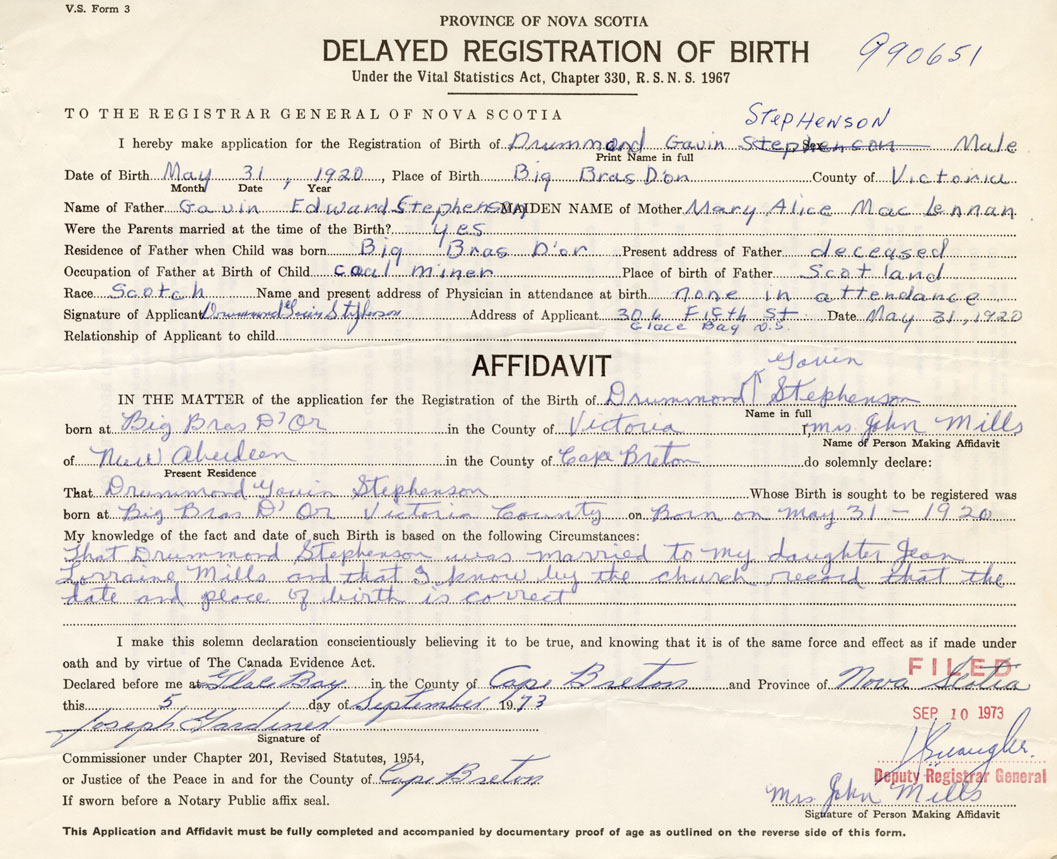 V.S. Form 3
PROVINCE OF NOVA SCOTIA
DELAYED REGISTRATION OF BIRTH
990651
Under the Vital Statistics Act, Chapter 330, R.S.N.S. 1967
TO THE REGISTRAR GENERAL OF NOVA SCOTIA
STEPHENSON
I hereby make application for the Registration of Birth of Drummond Gavin Stephenson Sex Male
Print Name in full
Date of Birth May 31, 1920, Place of Birth Big Bras D'or County of Victoria
Month Date Year
Name of Father Gavin Edward Stephenson MAIDEN NAME of Mother Mary Alice Mac Lennan
Were the Parents married at the time of the Birth? yes
Residence of Father when Child was born Big Bras D'or Present address of Father deceased
Occupation of Father at Birth of Child coal miner Place of birth of Father Scotland
Race Scotch Name and present address of Physician in attendance at birth none in attendance
Signature of Applicant Drummond Gavin Stephenson Address of Applicant 306 Fifth St Date May 31, 1920
Glace Bay N.S.
Relationship of Applicant to child
AFFIDAVIT
Gavin
IN THE MATTER of the application for the Registration of the Birth of Drummond Stephenson
Name in full
born at Big Bras D'Or in the County of Victoria I, Mrs John Mills
Name of Person Making Affidavit
of New Aberdeen in the County of Cape Breton do solemnly declare:
Present Residence
That Drummond Gavin Stephenson Whose Birth is sought to be registered was
born at Big Bras D'Or Victoria County on Born on May 31 - 1920
My knowledge of the fact and date of such Birth is based on the following Circumstances:
That Drummond Stephenson was married to my daughter Jean
Lorraine Mills and that I know by the church record that the
date and place of birth is correct
I make this solemn declaration conscientiously believing it to be true, and knowing that it is of the same force and effect as if made under
oath and by virtue of The Canada Evidence Act.
FILED
Declared before me at Glace Bay in the County of Cape Breton and Province of Nova Scotia
this 5 day of September 1973
SEP 10 1973
Joseph Gardiner
Signature of
Commissioner under Chapter 201, Revised Statutes, 1954,
or Justice of the Peace in and for the County of Cape Breton
Deputy Registrar General
If sworn before a Notary Public affix seal.
Mrs John Mills
Signature of Person Making Affidavit
This Application and Affidavit must be fully completed and accompanied by documentary proof of age as outlined on the reverse side of this form.